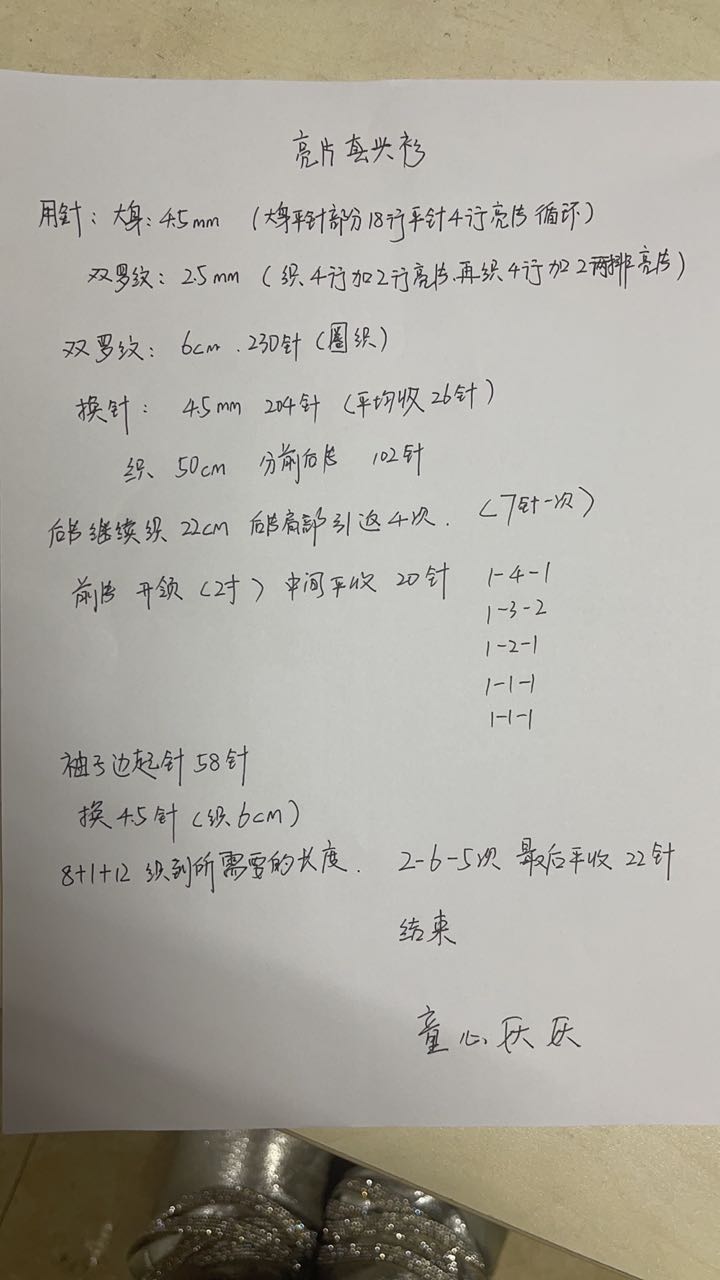 亮片套头衫
用针：大身：4.5mm （大身平针部分18行平针4行亮片循环）
双罗纹：2.5mm （织4行加2行亮片.再织4行加2两排亮片）
双罗纹：6cm.230针（圈织）
换针：4.5mm 204针（平均收26针）
织 50cm 分前后片 102针
后片继续织22cm 后片肩部引返4次.（7针一次）
前片开领（2寸）中间平收20针 1-4-1
1-3-2
1-2-1
1-1-1
1-1-1
袖子边起针58针
换4.5针（织6cm）
8+1+12 织到所需要的长度. 2-6-5次 最后平收22针
结束
童心